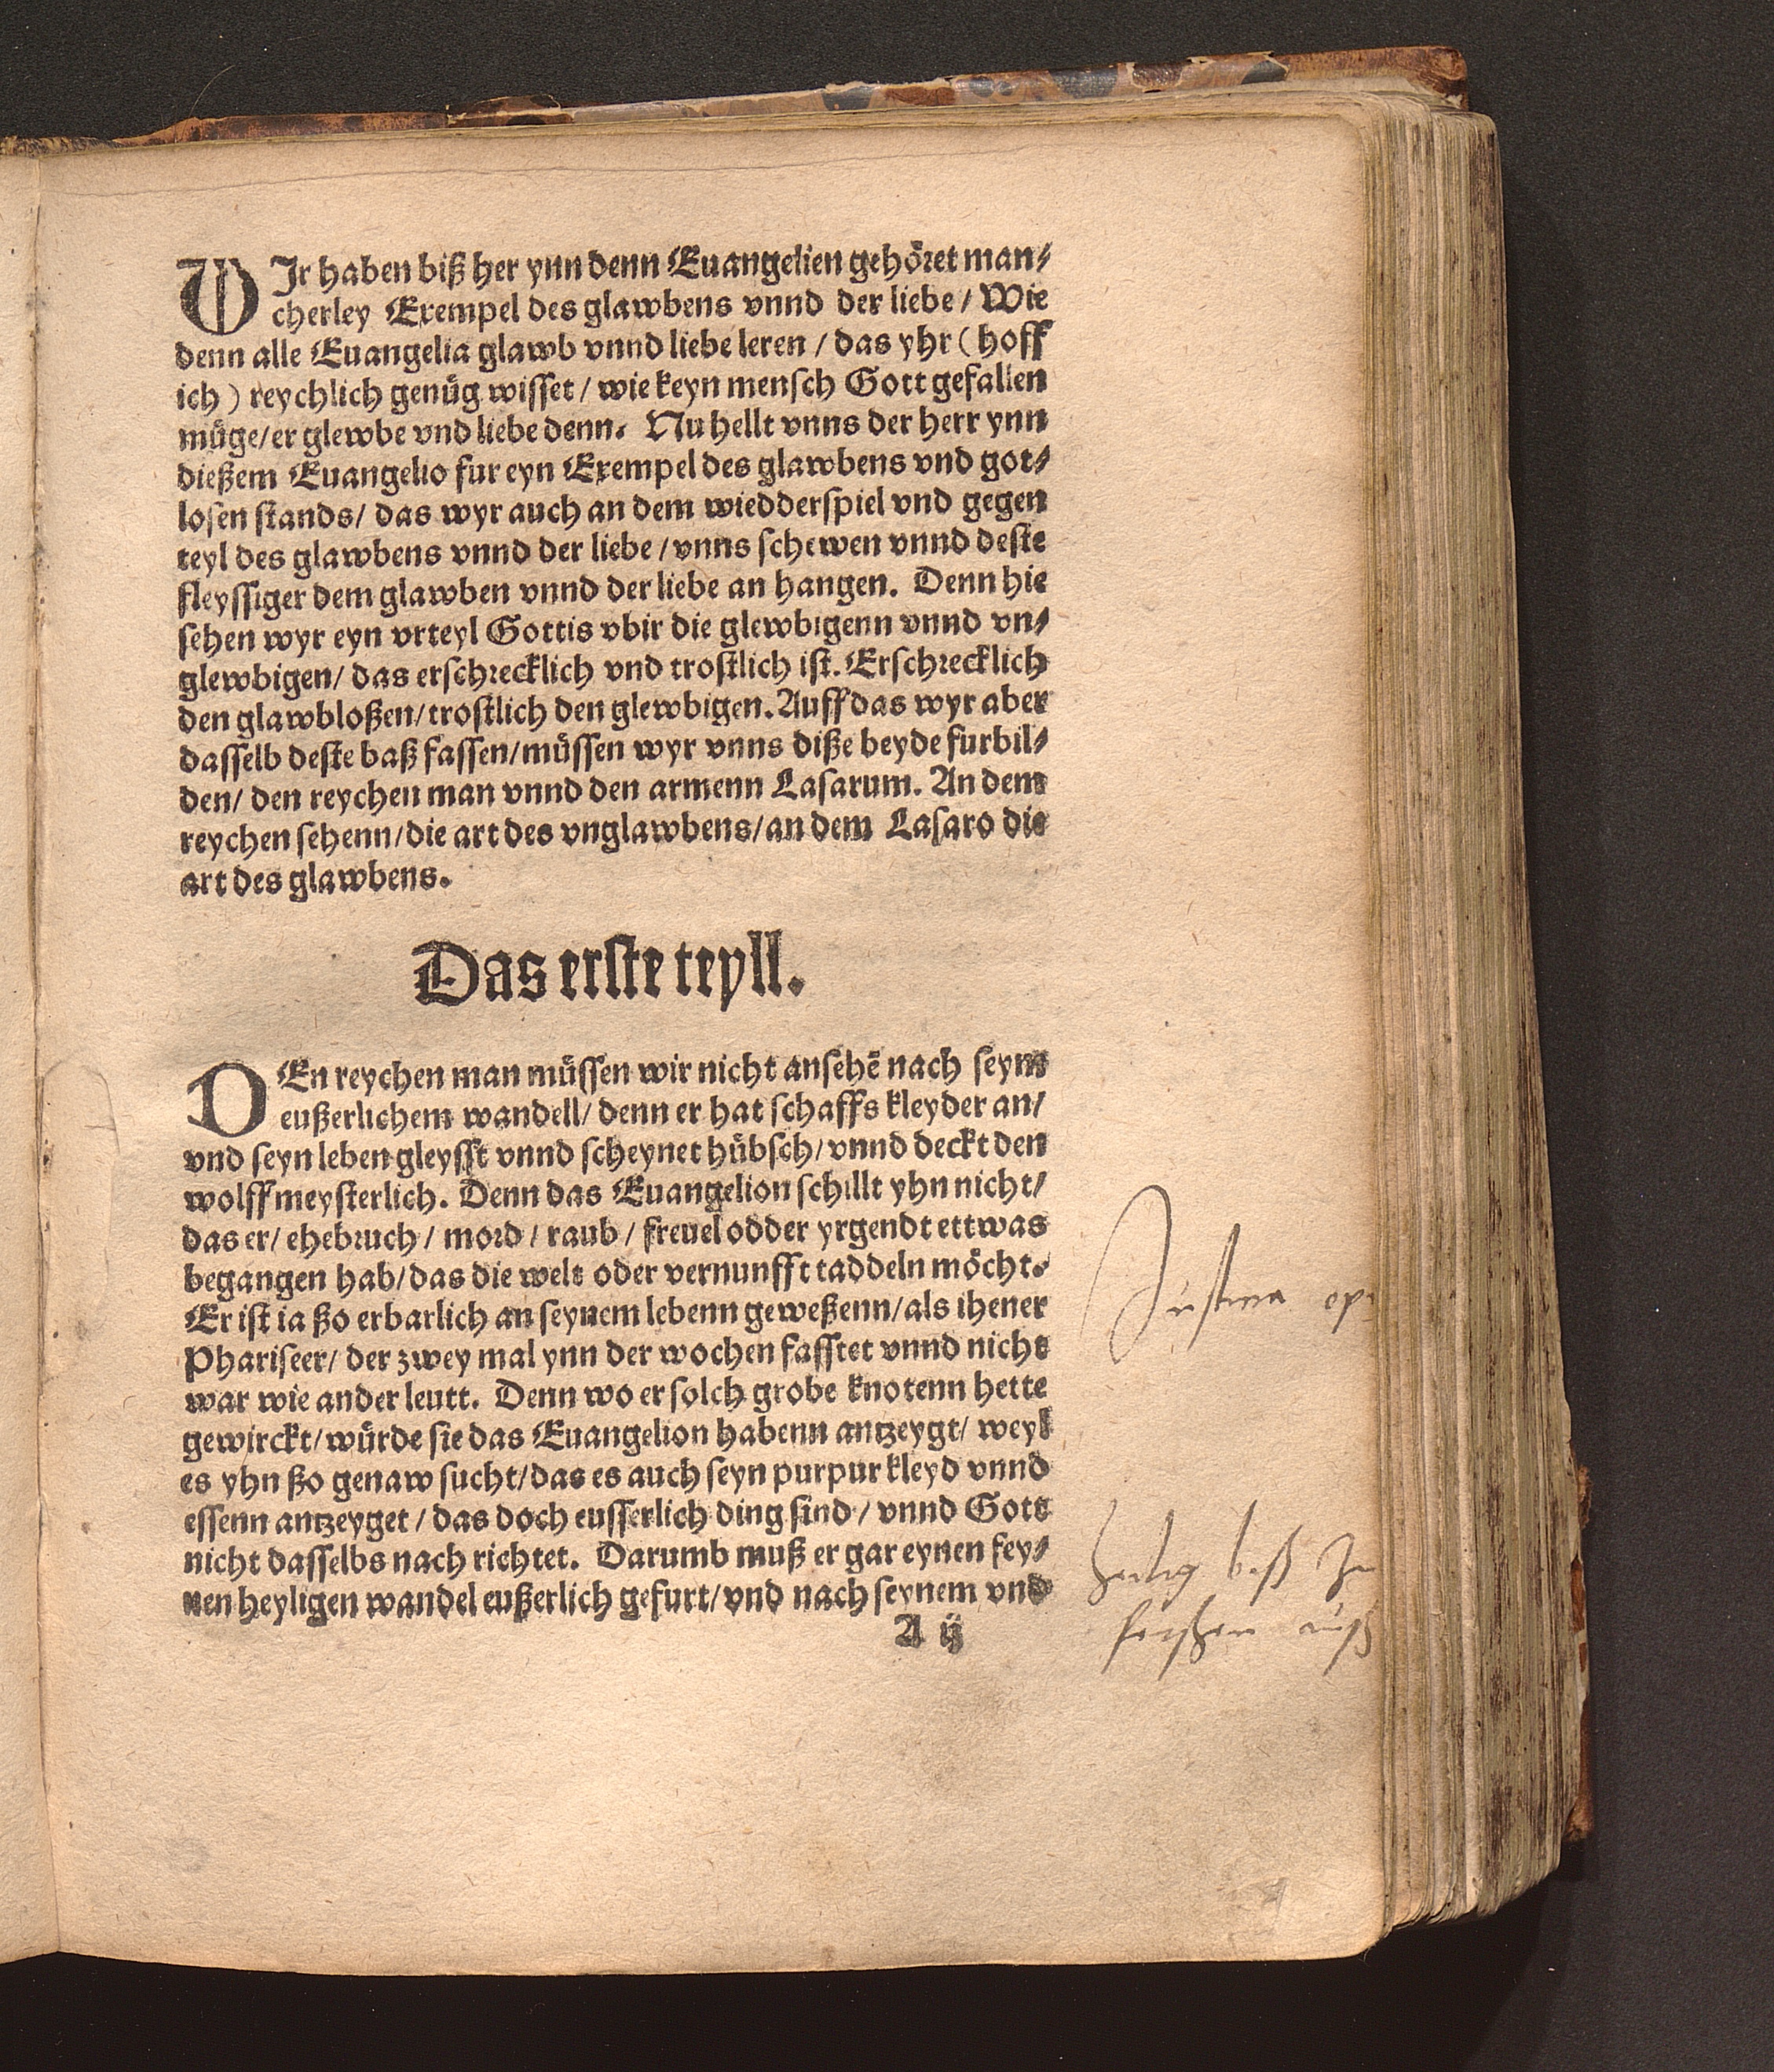 WJr haben biß her ynn denn Euangelien gehöret man⸗
cherley Exempel des glawbens vnnd der liebe / Wie
denn alle Euangelia glawb vnnd liebe leren / das yhr ( hoff
ich ) reychlich genůg wisset / wie keyn mensch Gott gefallen
můge / er glewbe vnd liebe denn. Nu hellt vnns der herr ynn
dießem Euangelio fur eyn Exempel des glawbens vnd got⸗
losen stands / das wyr auch an dem wiedderspiel vnd gegen
teyl des glawbens vnnd der liebe / vnns schewen vnnd deste
fleyssiger dem glawben vnnd der liebe an hangen. Denn hie
sehen wyr eyn vrteyl Gottis vbir die glewbigenn vnnd vn⸗
glewbigen / das erschrecklich vnd trostlich ist. Erschrecklich
den glawbloßen / trostlich den glewbigen. Auff das wyr aber
dasselb deste baß fassen / müssen wyr vnns diße beyde furbil⸗
den / den reychen man vnnd den armenn Lasarum. An dem
reychen sehenn / die art des vnglawbens / an dem Lasaro die
art des glawbens.
Das erste teyll.
DEn reychen man müssen wir nicht ansehē nach seym
eußerlichem wandell / denn er hat schaffs kleyder an /
vnd seyn leben gleysst vnnd scheynet hübsch / vnnd deckt den
wolff meysterlich. Denn das Euangelion schillt yhn nicht /
das er / ehebruch / mord / raub / freuel odder yrgendt ettwas
begangen hab / das die welt oder vernunfft taddeln möcht.
Er ist ia ßo erbarlich an seynem lebenn geweßenn / als ihener
Phariseer / der zwey mal ynn der wochen fasstet vnnd nicht
war wie ander leutt. Denn wo er solch grobe knotenn hette
gewirckt / würde sie das Euangelion habenn antzeygt / weyl
es yhn ßo genaw sucht / das es auch seyn purpur kleyd vnnd
essenn antzeyget / das doch eusserlich ding sind / vnnd Gott
nicht dasselbs nach richtet. Darumb muß er gar eynen fey⸗
nen heyligen wandel eußerlich gefurt / vnd nach seynem vnd
A ij